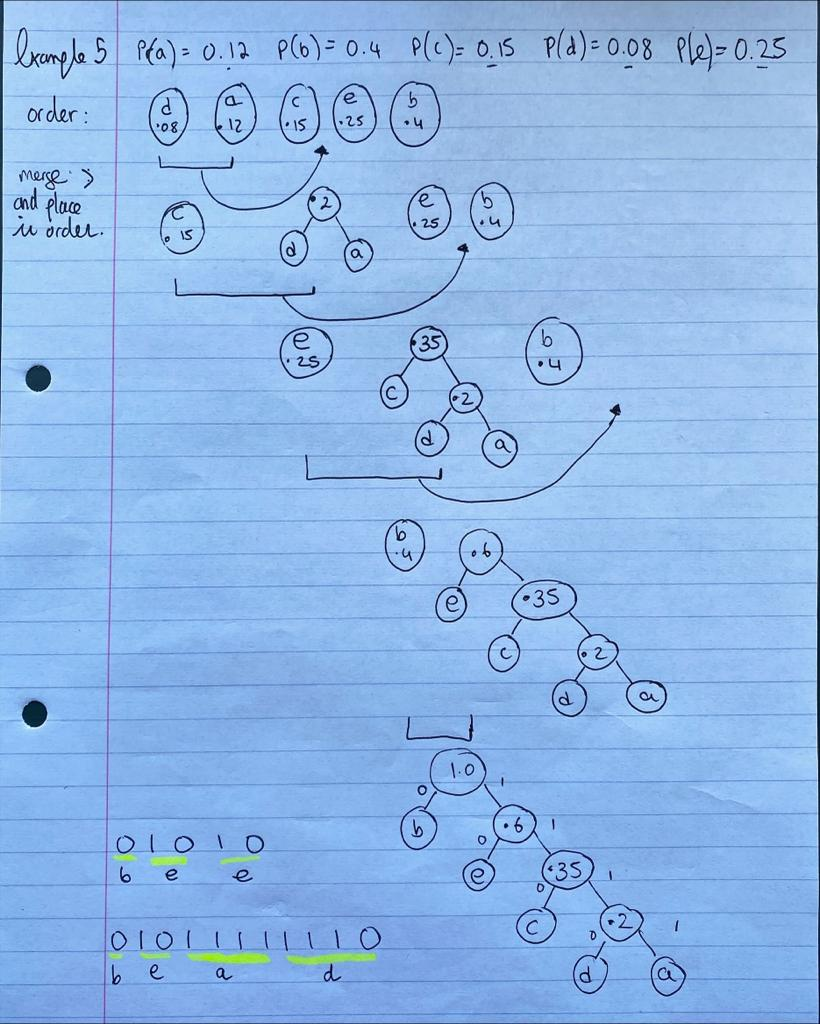 Example 5 P(a) = 0.12 P(b) = 0.4 P(c) = 0.15 P(d) = 0.08 P(e) = 0.25
order: d a c e b
.08 .12 .15 .25 .4
merge
and place
in order.
.2
c e b
.15 .25 .4
d a
e .35 b
.25 .4
c .2
d a
b .6
.4
e .35
c .2
d a
1.0
0 1
b .6 1
0
e .35 1
0
c .2 1
0
d a
0 1 0 1 0
b e e
0 1 0 1 1 1 1 1 1 1 0
b e a d